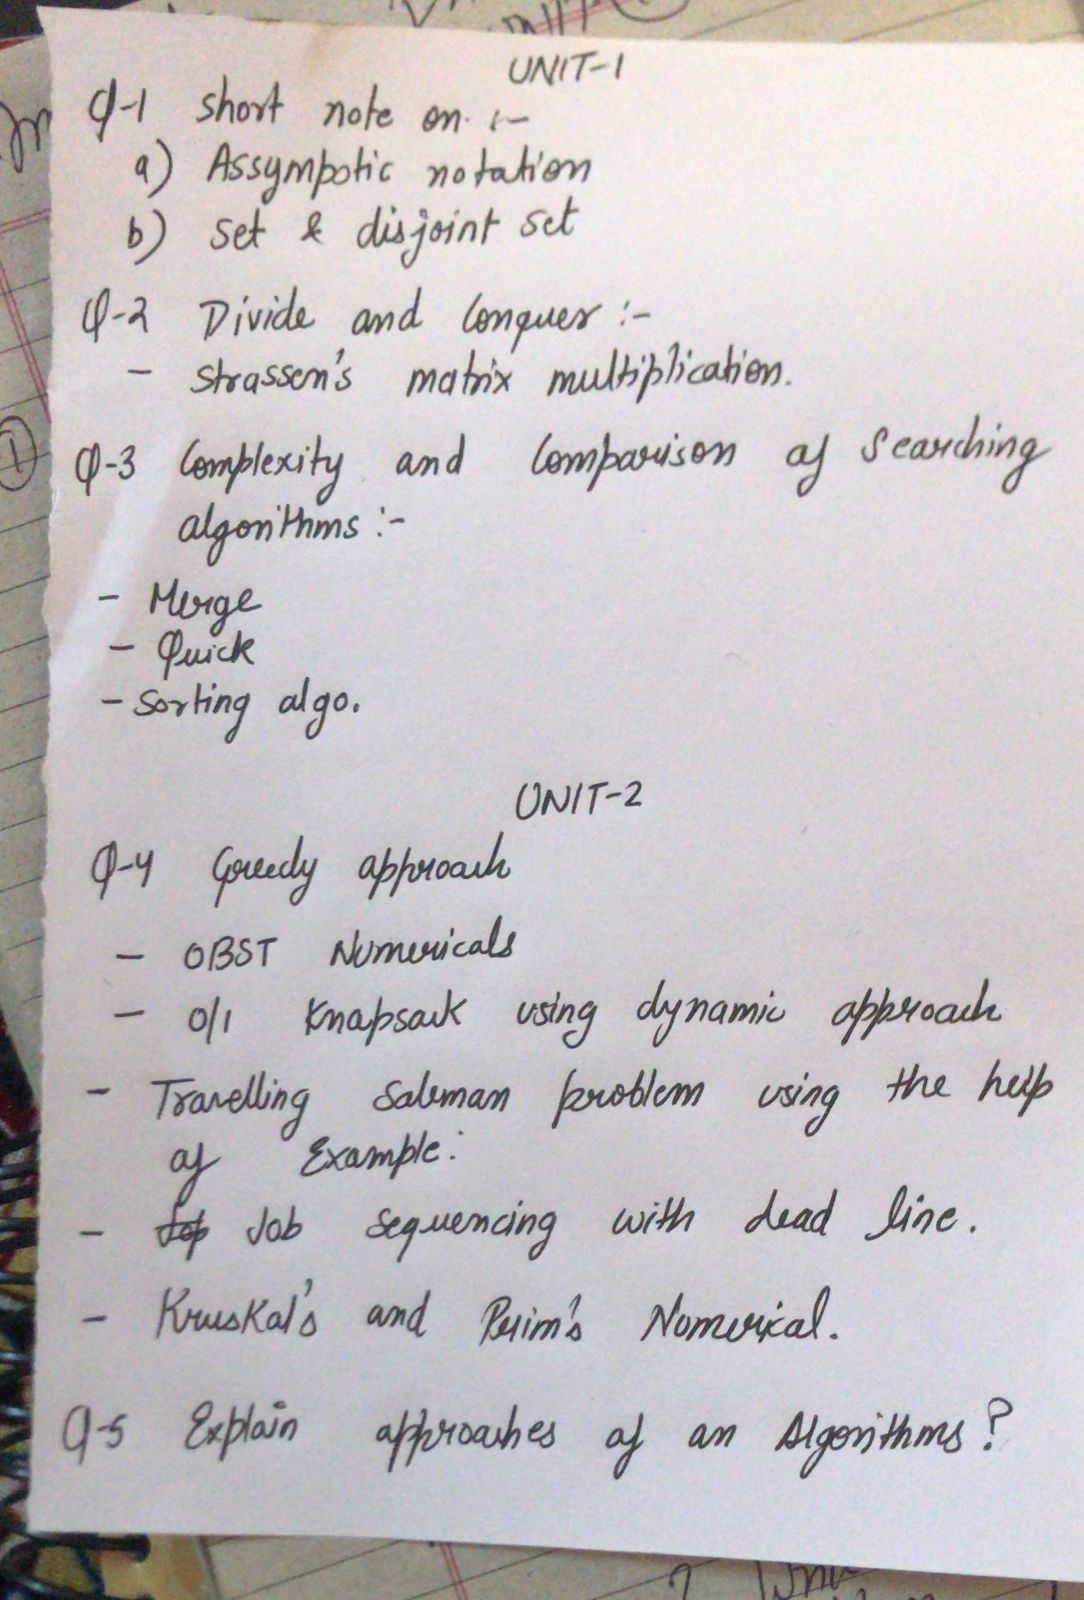 UNIT-1
Q-1 Short note on :-
a) Assympotic notation
b) Set & disjoint set
Q-2 Divide and Conquer :-
- Strassen's matrix multiplication.
Q-3 Complexity and Comparison of Searching
algorithms :-
- Merge
- Quick
- Sorting algo.
UNIT-2
Q-4 Greedy approach
- OBST Numericals
- 0/1 Knapsack using dynamic approach
- Travelling Salesman problem using the help
of Example:
- Job Sequencing with dead line.
- Kruskal's and Prim's Numerical.
Q-5 Explain approaches of an Algorithms?